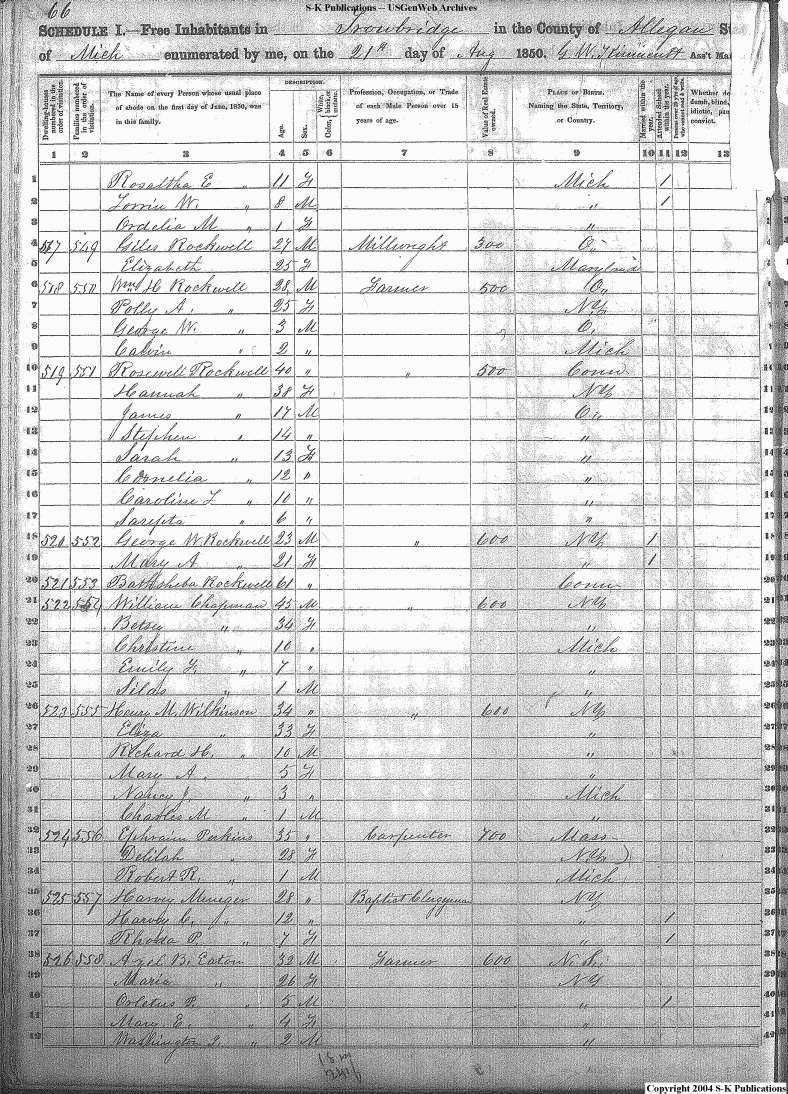 S-K Publications -- USGenWeb Archives
66
SCHEDULE I.—Free Inhabitants in Trowbridge in the County of Allegan
of Mich enumerated by me, on the 21st day of Aug 1850. G. W. Ass't Ma
DESCRIPTION.
Dwelling-houses numbered in the order of visitation.
Families numbered in the order of visitation.
The Name of every Person whose usual place of abode on the first day of June, 1850, was in this family.
Age.
Sex.
Color, White, black, or mulatto.
Profession, Occupation, or Trade of each Male Person over 15 years of age.
Value of Real Estate owned.
PLACE OF BIRTH. Naming the State, Territory, or Country.
Married within the year.
Attended School within the year.
Whether de dumb, blind, idiotic, pau convict.
1 2 3 4 5 6 7 8 9 10 11 12 13
1 Rosaltha E " 11 F Mich 1
2 Lorrin W. " 8 M " 1
3 Ordelia M " 1 F "
4 517 549 Giles Rockwell 27 M Millwright 300 O,,
5 Elizabeth 25 F Maryland
6 518 550 Wm H Rockwell 28 M Farmer 500 O,,
7 Polly A. " 25 F NY
8 George W. " 3 M O.
9 Calvin " 2 " Mich
10 519 551 Rosewell Rockwell 40 " " 500 Conn
11 Hannah " 38 F NY
12 James " 17 M O,,
13 Stephen " 14 " "
14 Sarah " 13 F "
15 Cornelia " 12 " "
16 Caroline L " 10 " "
17 Sarepta " 6 " "
18 520 552 George W. Rockwell 23 M " 600 NY 1
19 Mary A " 21 F " 1
20 521 553 Bathsheba Rockwell 61 " Conn
21 522 554 William Chapman 45 M " 600 NY
22 Betsey " 34 F "
23 Christine " 10 " Mich
24 Emily F. " 7 " "
25 Silas " 1 M "
26 523 555 Henry M. Wilkinson 34 " " 600 NY
27 Eliza " 33 F "
28 Richard H. " 10 M "
29 Mary A. 5 F "
30 Nancy J. " 3 " Mich
31 Charles M " 1 M "
32 524 556 Ephraim Perkins 35 " Carpenter 700 Mass
33 Delilah " 28 F NY
34 Robert R. " 1 M Mich
35 525 557 Harvey Munger 28 " Baptist Clergyman NY
36 Harvey C. " 12 " " 1
37 Rhoda P " 7 F " 1
38 526 558 Azel B. Eaton 32 M Farmer 600
39 Maria " 26 F NY
40 Orletus P. " 5 M " 1
41 Mary E. " 4 F "
42 Washington I. " 2 M "
Copyright 2004 S-K Publications